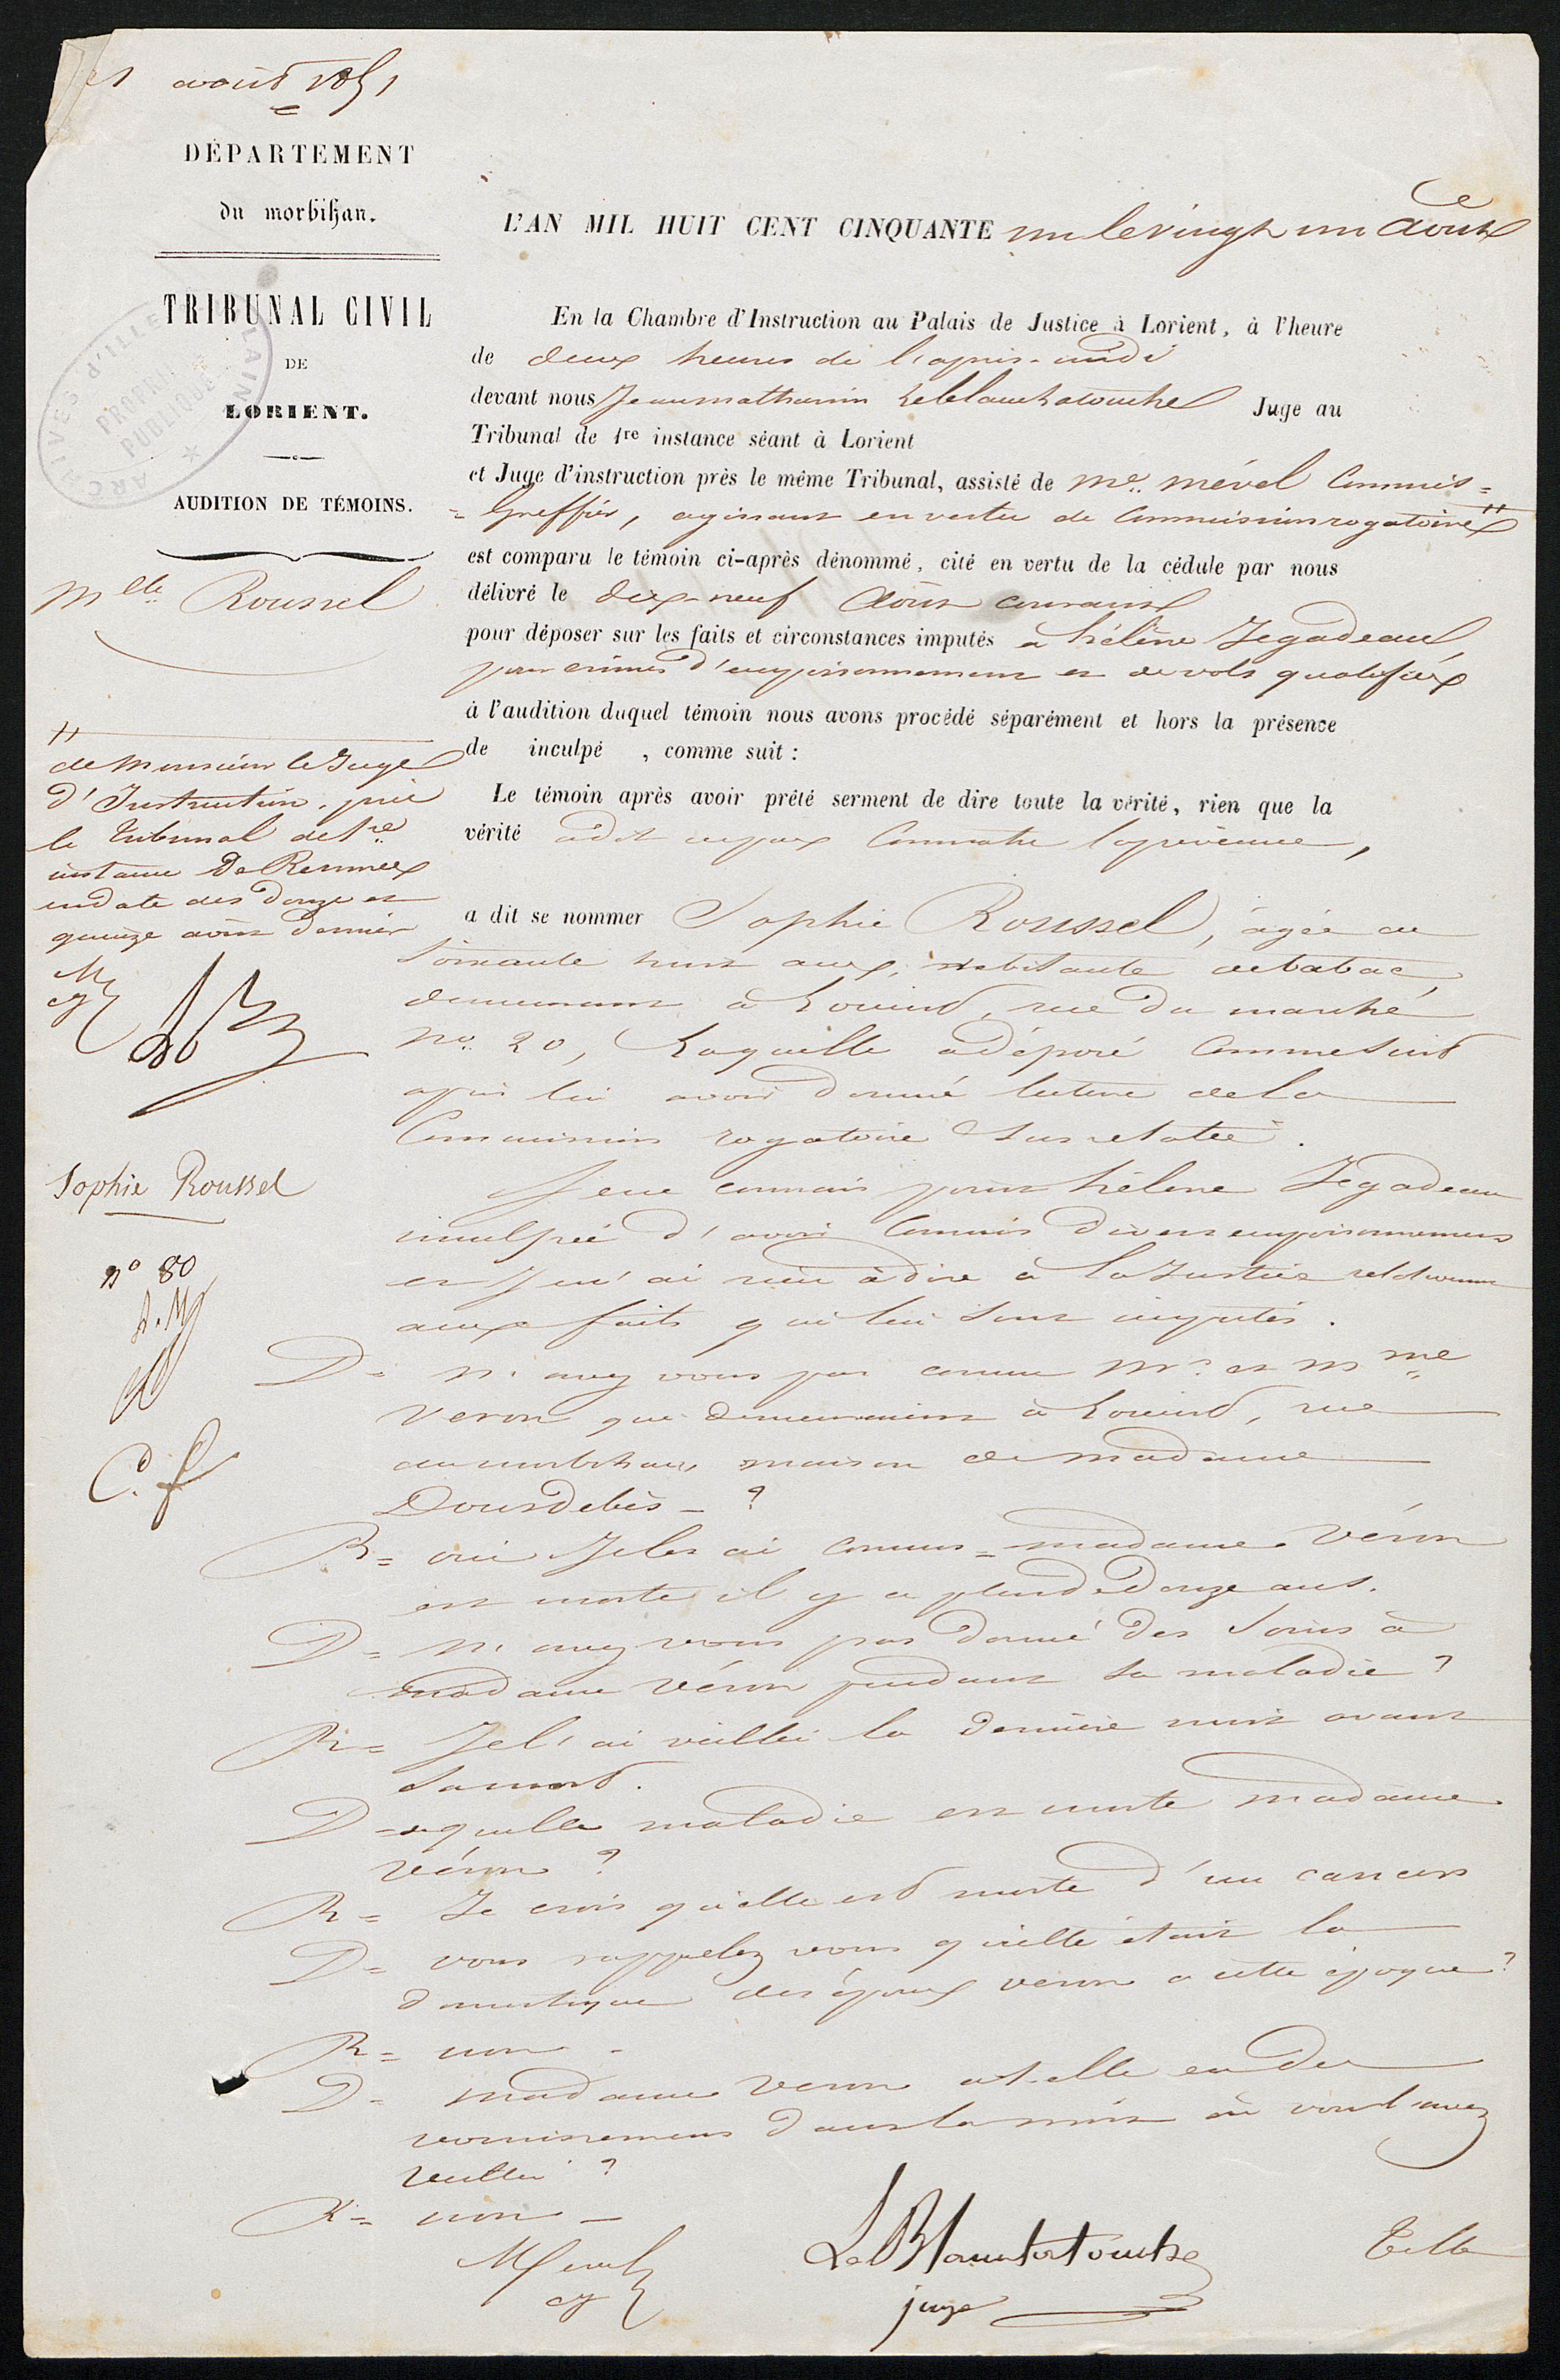 21 août 1851
DÉPARTEMENT
du morbihan.
TRIBUNAL CIVIL
DE
LORIENT.
AUDITION DE TÉMOINS.
ARCHIVES d'ILLE VILAINE
PROPRIÉTÉ
PUBLIQUE
Mlle Roussel
L'AN MIL HUIT CENT CINQUANTE un le vingt un Août
En la Chambre d'Instruction au Palais de Justice à Lorient, à l'heure
de deux heures de l'après-midi
devant nous Jean mathurin Leblanchatouche Juge au
Tribunal de 1re instance séant à Lorient
et Juge d'instruction près le même Tribunal, assisté de Me. mével Commis =
= Greffier, agissant en vertu de Commission rogatoire
est comparu le témoin ci-après dénommé, cité en vertu de la cédule par nous
délivré le dix-neuf Août courant
pour déposer sur les faits et circonstances imputés à hélène Jegadeau
pour crimes d'empoisonnement et de vols qualifiés
à l'audition duquel témoin nous avons procédé séparément et hors la présence
de inculpé , comme suit :
Le témoin après avoir prêté serment de dire toute la vérité, rien que la
vérité a dit ne pas Connaitre la prévenue,
a dit se nommer Sophie Roussel, agée de
soixante huit ans, debitante de tabac,
demeurant à Lorient, rue du marché
no. 20, Laquelle a déposé Comme suit
après lui avoir donné lecture de la
Commission rogatoire sus relatée.
Je ne connais point hélène Jegadeau
inculpée d'avoir Commis divers empoisonnemens
et je n'ai rien à dire à la Justice relativement
aux faits qui lui sont imputés.
D = N'avez vous pas connu Mr. et Mme
Veron qui demeuraient à Lorient, rue
du morbihan, maison de madame
Dousdebès - ?
R = oui Je les ai connus = madame Véron
est morte il y a plus de douze ans.
D = N'avez vous pas donné des soins à
madame Véron pendant sa maladie ?
R = Je l'ai veillée la dernière nuit avant
sa mort.
D = de quelle maladie est morte madame
Véron ?
R = Je crois qu'elle est morte d'un cancer
D = vous rappelez vous quelle était la
domestique des époux veron a cette époque ?
R = non -
D = madame veron a-t-elle eu des
vomissemens dans la nuit où vous l'avez
veillée ?
R = non -
de Monsieur le Juge
d'Instruction, près
le tribunal de 1re
instance De Rennes
en date des douze et
quinze août dernier
Sophie Roussel
no 80
C. f
Mével
cg
LeBlanchatouche
juge
Telle